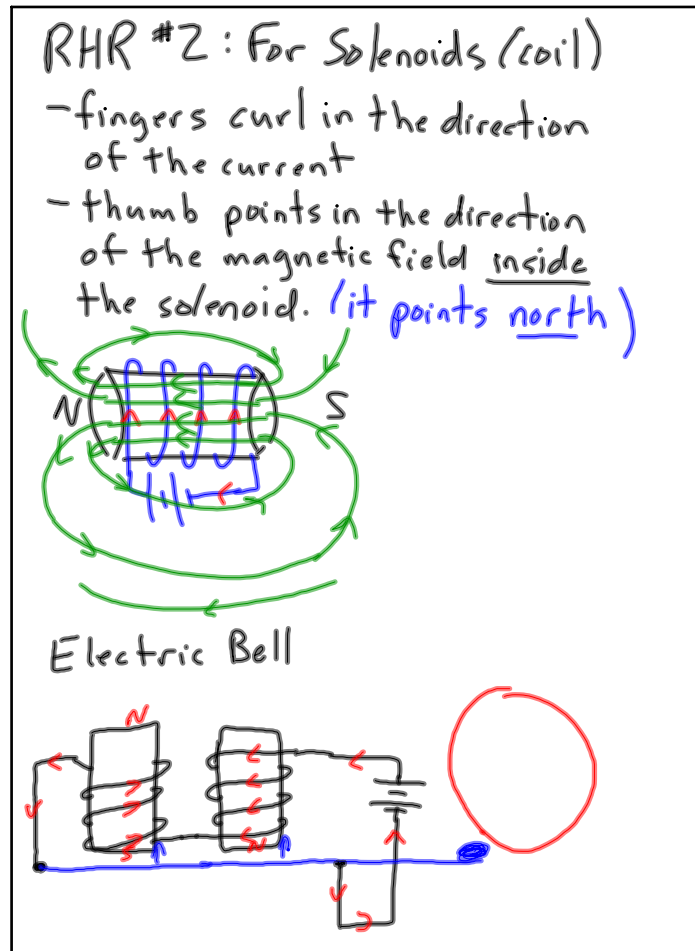 RHR #2: For Solenoids (coil)
- fingers curl in the direction
of the current
- thumb points in the direction
of the magnetic field inside
the solenoid. (it points north)
N S
Electric Bell
N
S N